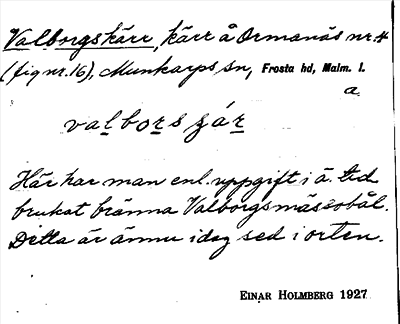 Valborgskärr, kärr å Ormanäs nr. 4
(fig nr. 16), Munkarps sn, Frosta hd, Malm. l.
a.
valborsʒár
Här har man enl. uppgift i ä. tid
brukat bränna Valborgsmässobål.
Detta är ännu idag sed i orten.
EINAR HOLMBERG 1927